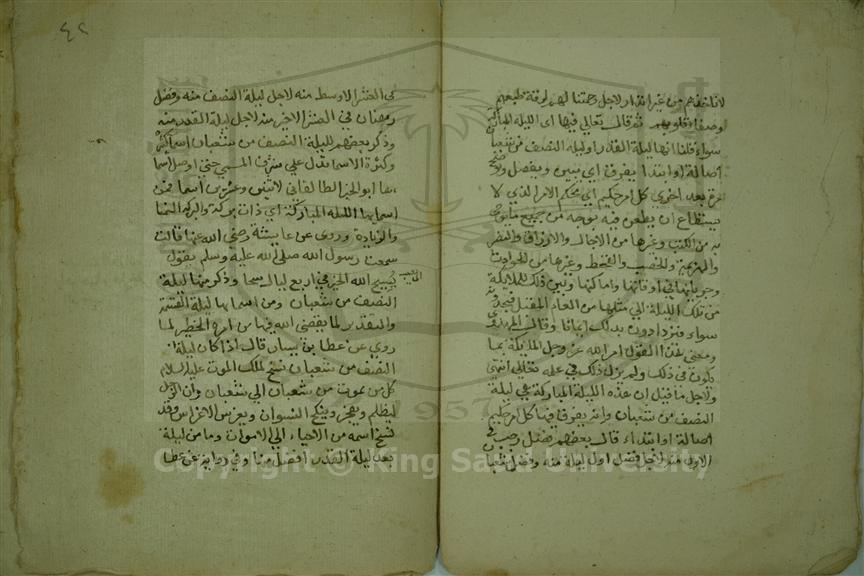 لانلحقهم من غير انذار لاجل رحمتنا لهم لرقة طبعهم
وصفا قلوبهم ثم قال تعالى فيها اى الليلة المباركة
سواء قلنا انها ليلة القدر او ليلة النصف من شعبان
اصالة او ابتدا يفرق اي يبين ويفصل ويوضح
مرة بعد اخرى كل امر حكيم اي محكم الامر الذي لا
يستطاع ان يطعن فيه بوجه من جميع ما يوحى
به من الكتب وغيرها من الاجال والارزاق والنصر
والهزيمة والخصب والقحط وغيرها من الحوادث
وجرياتها في اوقاتها واماكنها ويبين ذلك للملايكة
من تلك الليلة الي مثلها من العام المقبل فيجدونه
سواء فيزدادون بذلك ايمانا وقال المرزوقي
ومعنى هذا القول امر الله عز وجل الملايكة بما
يكون في ذلك ولم يزل ذلك في علمه تعالي انتهى
ولاجل ما قيل ان هذه الليلة المباركة هي ليلة
النصف من شعبان وانه يفرق فيها كل امر حكيم
اصالة او ابتداء قال بعضهم فضل رجب في
الاول منه لاجل فضل اول ليلة منه وفضل شعبان
٤٢
في العشر الاوسط منه لاجل ليلة النصف منه وفضل
رمضان في العشر الاخير منه لاجل ليلة القدر منه
وذكر بعضهم لليلة النصف من شعبان اسما كثيرة
وكثرة الاسما تدل علي شرف المسمى حتى اوصل اسما
ها ابو الخير الطالقاني لاثنين وعشرين اسما فمن
اسمايها الليلة المباركة اي ذات بركة والبركة النما
والزيادة وروى عن عايشة رضى الله عنها قالت
سمعت رسول الله صلى الله عليه وسلم يقول
يسبح الله الخير في اربع ليال سحا وذكر منها ليلة
النصف من شعبان ومن اسمايها ليلة القسمة
والتقدير لما يقضى الله فيها من امره الخطير لما
روي عن عطا بن يسار قال اذا كان ليلة
النصف من شعبان نسخ لملك الموت عليه السلام
كل من يموت من شعبان الي شعبان وان الرجل
ليظلم ويفجر وينكح النسوان ويغرس الاغراس وقد
نسخ اسمه من الاحياء الي الاموات وما من ليلة
بعد ليلة القدر افضل منها وفي رواية عن عطا
1957
Copyright © King Saud University